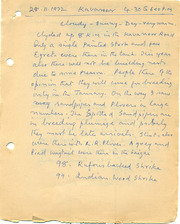 28.11.1972 Kavanoor G. 30 to 600 Kg
Cloudy - Rainy. Day - very warm
Clocked up 8 Kms in the Kavanoor Road
Only a single Painted Stork and few
Egrets even there in the tank. This year
also there will not be breeding mostly
due to some Pressure. People there of the
opinion that they will come for breeding
only in the January. On the way I saw
many sandpipers and Plovers in large
numbers. The Spotted Sandpipers are
in breeding plumage and probably
they must be late arrivals. Stints also
were there with L.R. Plovers. A gray and
Pond were there in the
98. Rufousbacked Shrike
99. Indian Wood Shrike